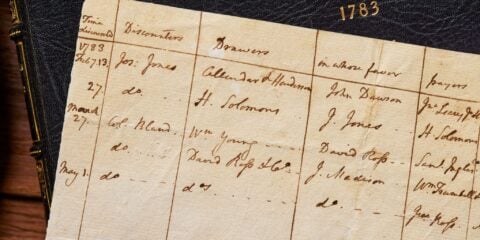 1783
Time discounted Discounters Drawers in whose favor payers
1783
Feb. 7. 13. Jos: Jones Callendar & Henderson John Dawson
27. do. H. Solomons J. Jones H. Solomon
March 27. Col. Bland Wm Young David Ross Saml Inglis
do David Ross & Co. J. Madison Wm Turnbull
May 1. do dos do. Geo. Ross